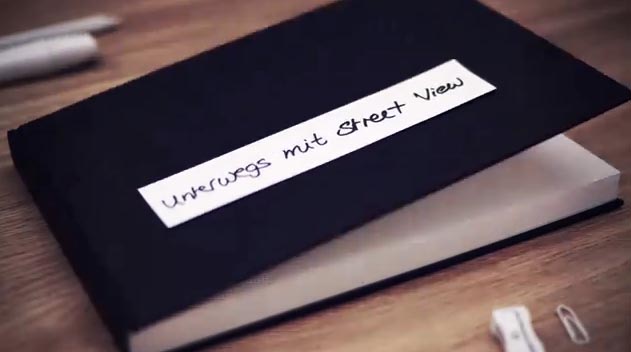 unterwegs mit Street View